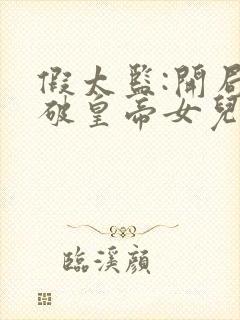 假太監:開局
破皇帝女兒
臨溪顔